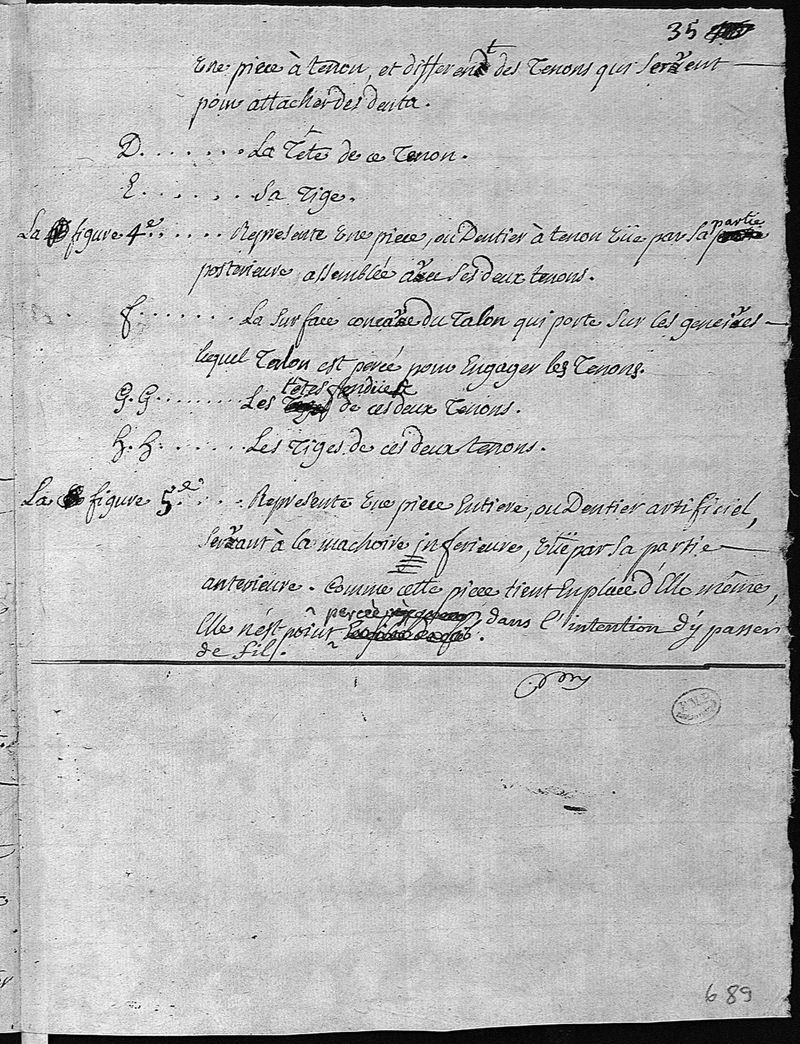 35
Une piece à tenon, et different des Tenons qui servent
pour attacher des dents.
D. . . . . . . La Tête de ce Tenon.
E. . . . . . . Sa Tige.
La figure 4e. . . . . . Represente Une piece, ou Dentier à tenon Vüe par Sa partie
posterieure, assemblée avec Ses deux tenons.
f. . . . . . . La surface concave du Talon qui porte sur les gencives
lequel Talon est percé pour Engager les Tenons.
G. G. . . . . . . Les têtes fendues de ces deux Tenons.
h. h. . . . . . . Les Tiges de ces deux tenons.
La figure 5e. . . . Represente Une piece Entiere, ou Dentier artificiel,
servant à la machoire inferieure, Vüe par Sa partie
anterieure. Comme cette piece tient En place d'Elle même,
Elle n'est point percée, dans l'intention d'y passer
de fils.
689